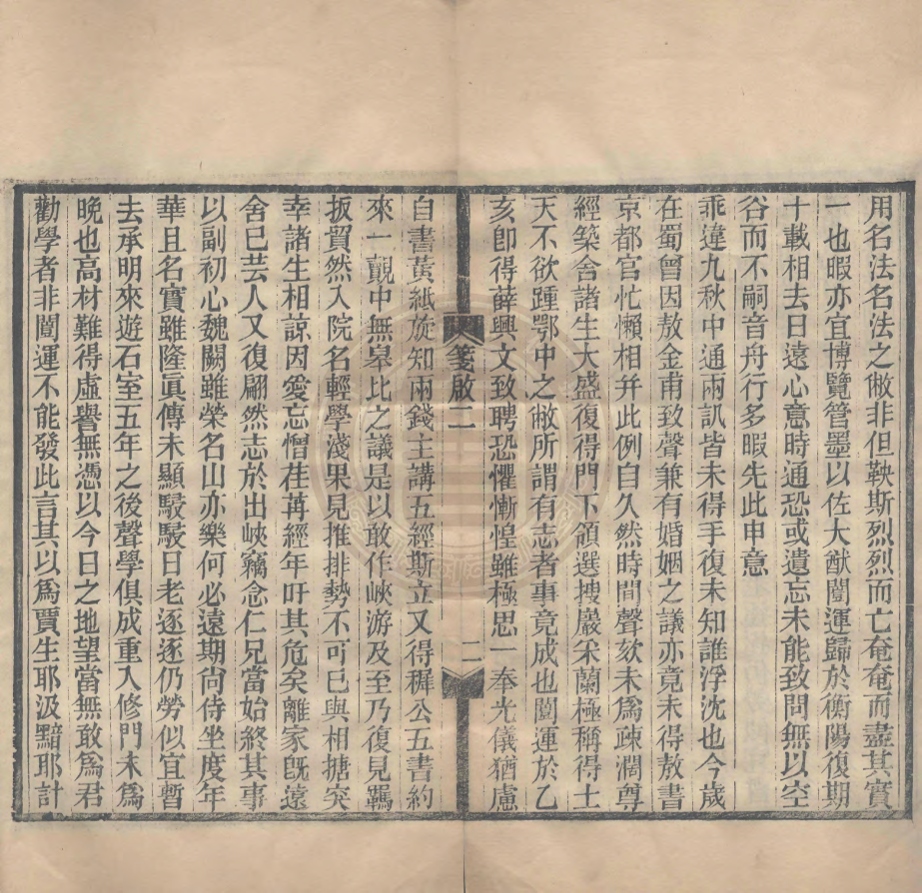 用名法名法之敝非但鞅斯烈烈而亡奄奄而盡其實
一也暇亦宜博覽管墨以佐大猷闓運歸於衡陽復期
十載相去日遠心意時通恐或遺忘未能致問無以空
谷而不嗣音舟行多暇先此申意
乖違九秋中通兩訊皆未得手復未知誰浮沈也今歲
在蜀曾因敖金甫致聲兼有婚姻之議亦竟未得敖書
京都官忙懶相并此例自久然時間聲欬未爲疎濶尊
經築舍諸生大盛復得門下領選搜巖采蘭極稱得士
天不欲踵鄂中之敝所謂有志者事竟成也闓運於乙
亥卽得薛興文致聘恐懼慚惶雖極思一奉光儀猶慮
箋啟二
二
自書黃紙旋知兩錢主講五經斯立又得穉公五書約
來一覿中無皋比之議是以敢作峽游及至乃復見羈
扳貿然入院名輕學淺果見推排勢不可已與相搪突
幸諸生相諒因愛忘憎荏苒經年吁其危矣離家旣遠
舍已芸人又復翩然志於出峽竊念仁兄當始終其事
以副初心魏闕雖榮名山亦樂何必遠期尙侍坐度年
華且名實雖隆眞傳未顯駸駸日老逐逐仍勞似宜暫
去承明來遊石室五年之後聲學俱成重入修門未爲
晚也高材難得虛譽無憑以今日之地望當無敢爲君
勸學者非闓運不能發此言其以爲賈生耶汲黯耶計